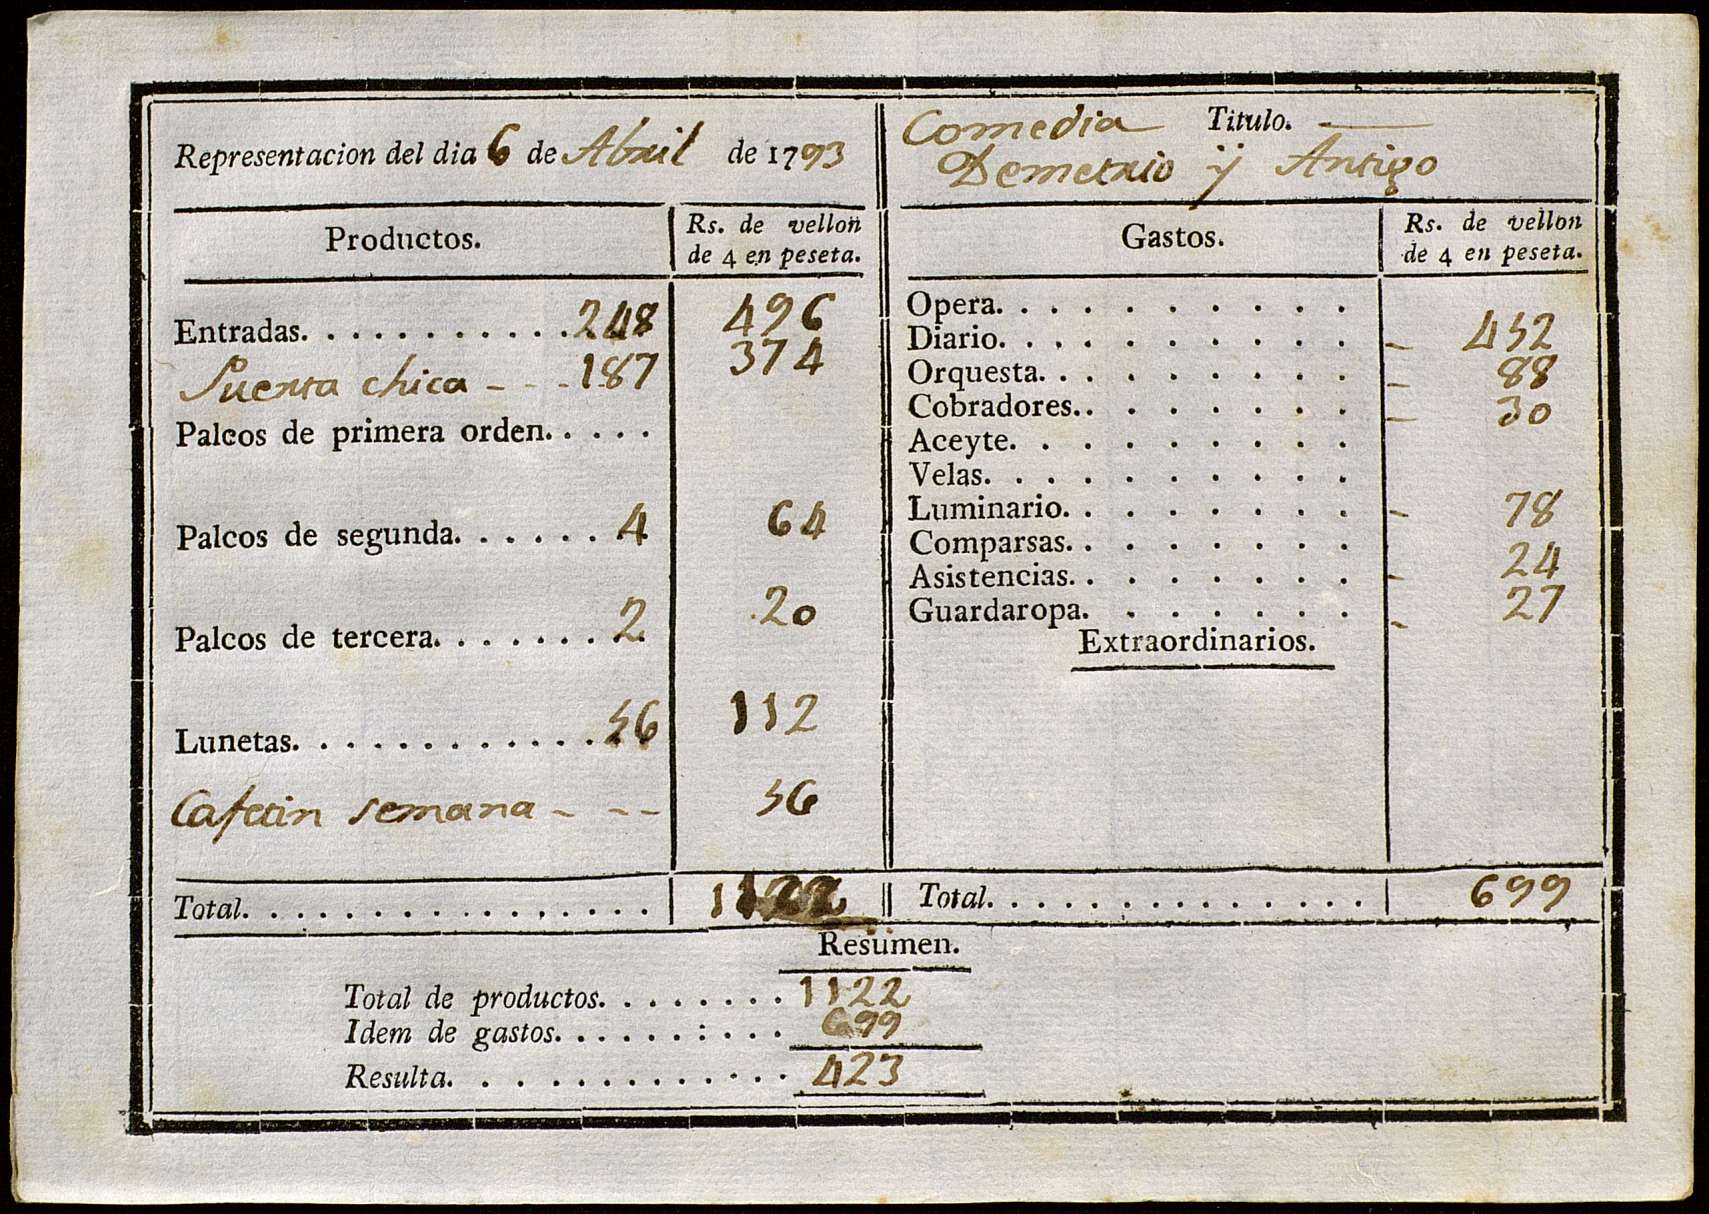 Representacion del dia 6 de Abril de 1793
Comedia Titulo.
Demetrio ÿ Antigo
Productos.
Rs. de vellon
de 4 en peseta.
Gastos.
Rs. de vellon
de 4 en peseta.
Entradas. 248 496
Puerta chica - - - 187 374
Palcos de primera orden.
Palcos de segunda. 4 64
Palcos de tercera. 2 20
Lunetas. 56 112
Cafetin semana - - - 56
Total. 1122
Opera.
Diario. - 452
Orquesta. - 88
Cobradores. - 30
Aceyte.
Velas.
Luminario. - 78
Comparsas.
Asistencias. - 24
Guardaropa. - 27
Extraordinarios.
Total. 699
Resumen.
Total de productos. 1122
Idem de gastos. 699
Resulta. 423